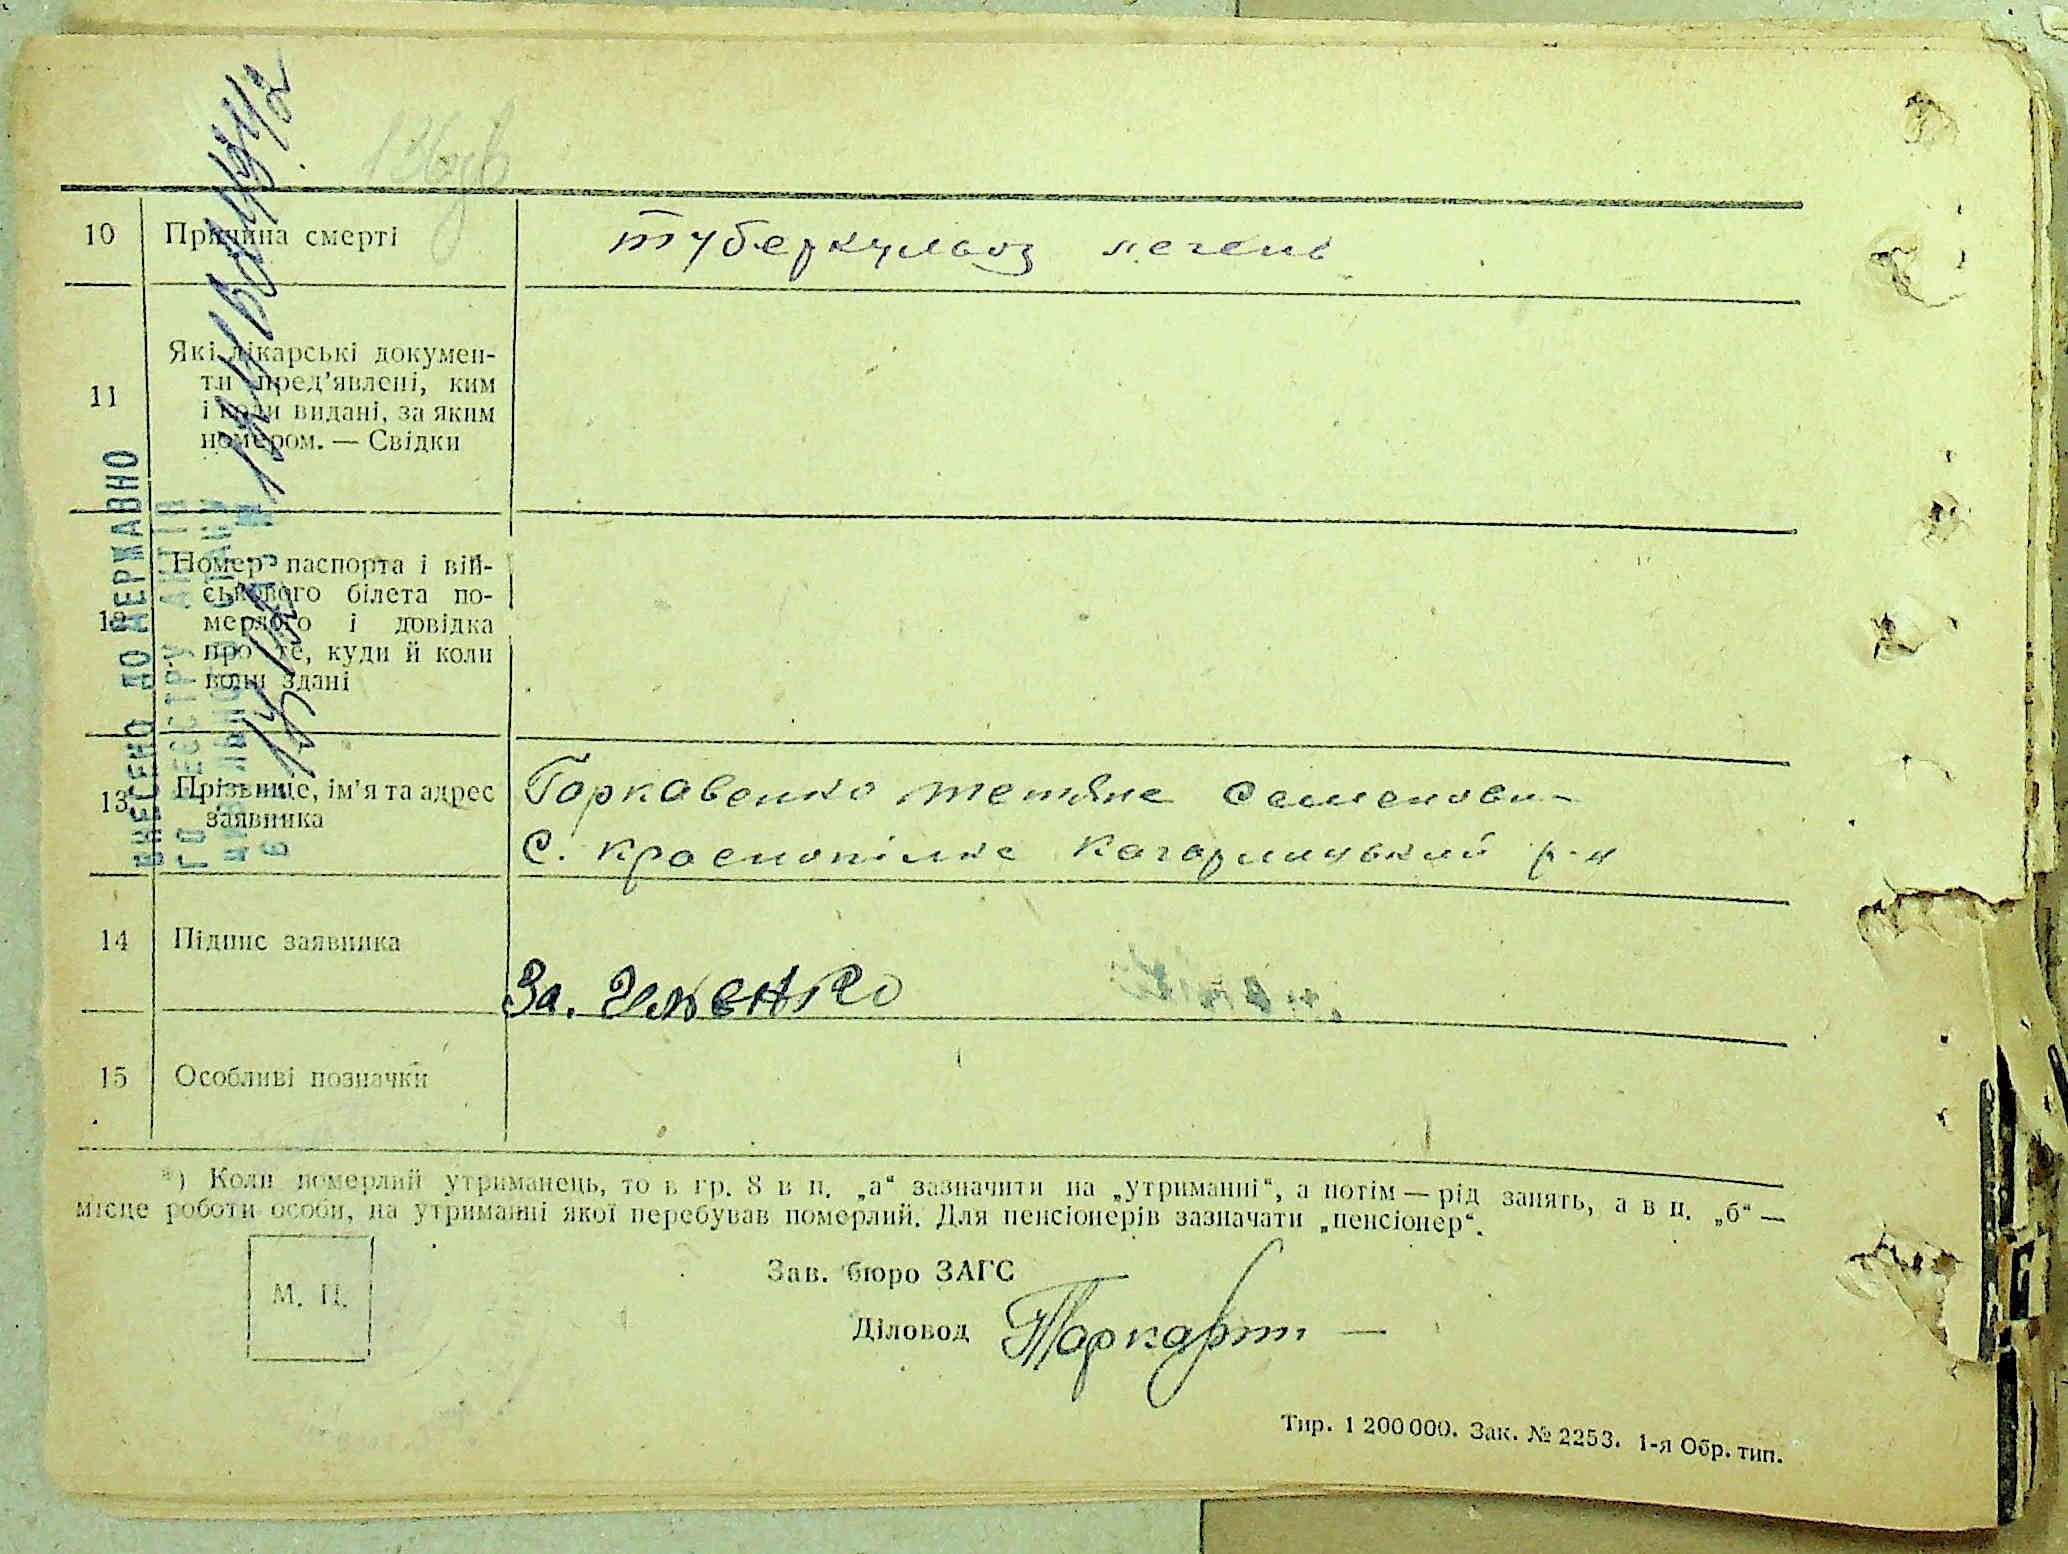 136зв
10 Причина смерті туберкульоз легень
11 Які лікарські докумен-
ти пред’явлені, ким
і коли видані, за яким
номером. — Свідки
12 Номер паспорта і вій-
ськового білета по-
мерлого і довідка
про те, куди й коли
вони здані
13 Прізвище, ім’я та адрес
заявника
Горкавенко Тетяна Семенови-
С. Краснопілка Кагарлицький р-н
14 Підпис заявника
За.
15 Особливі позначки
*) Коли померлий утриманець, то в гр. 8 в п. „а“ зазначити на „утриманні“, а потім — рід занять, а в п. „б“ —
місце роботи особи, на утриманні якої перебував померлий. Для пенсіонерів зазначати „пенсіонер“.
М. П.
Зав. бюро ЗАГС
Діловод
Тир. 1 200 000. Зак. № 2253. 1-я Обр. тип.
ВНЕСЕНО ДО ДЕРЖАВНО
ГО РЕЄСТРУ АКТІВ
ЦИВІЛЬНОГО СТАНУ